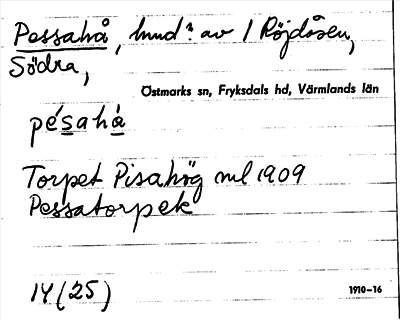 Pessahå, hmd? av 1 Röjdåsen,
Södra,
Östmarks sn, Fryksdals hd, Värmlands län
pésahå̀
Torpet Pisahög ml 1909
Pessatorpet
14 (25)
1910–16